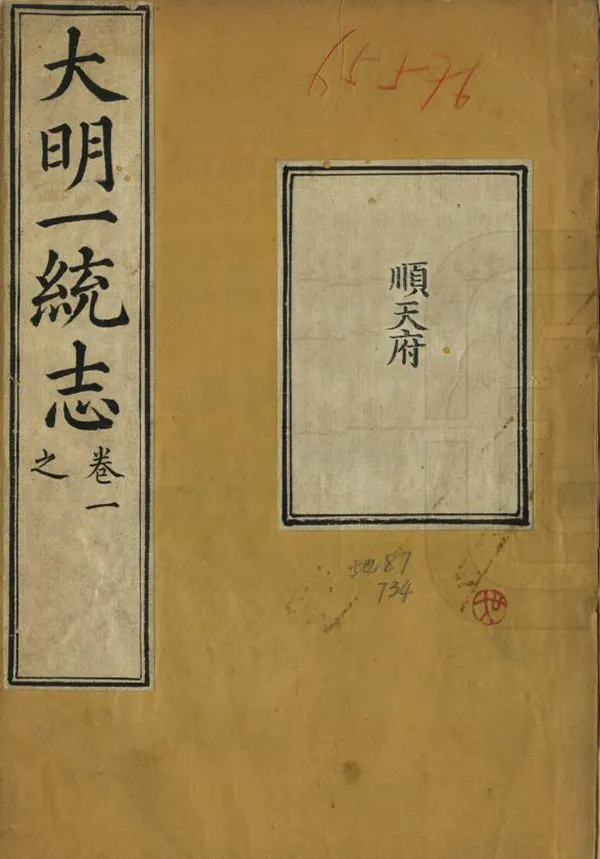 大明一統志
卷一
之
65576
順天府
地87
734
地